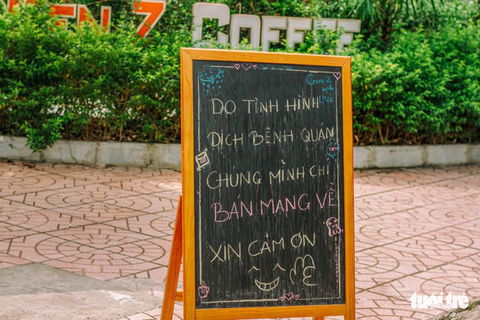 EN 7 COFFEE
DO TÌNH HÌNH
DỊCH BỆNH QUÁN
CHÚNG MÌNH CHỈ
BÁN MANG VỀ
XIN CẢM ƠN
tuổi trẻ